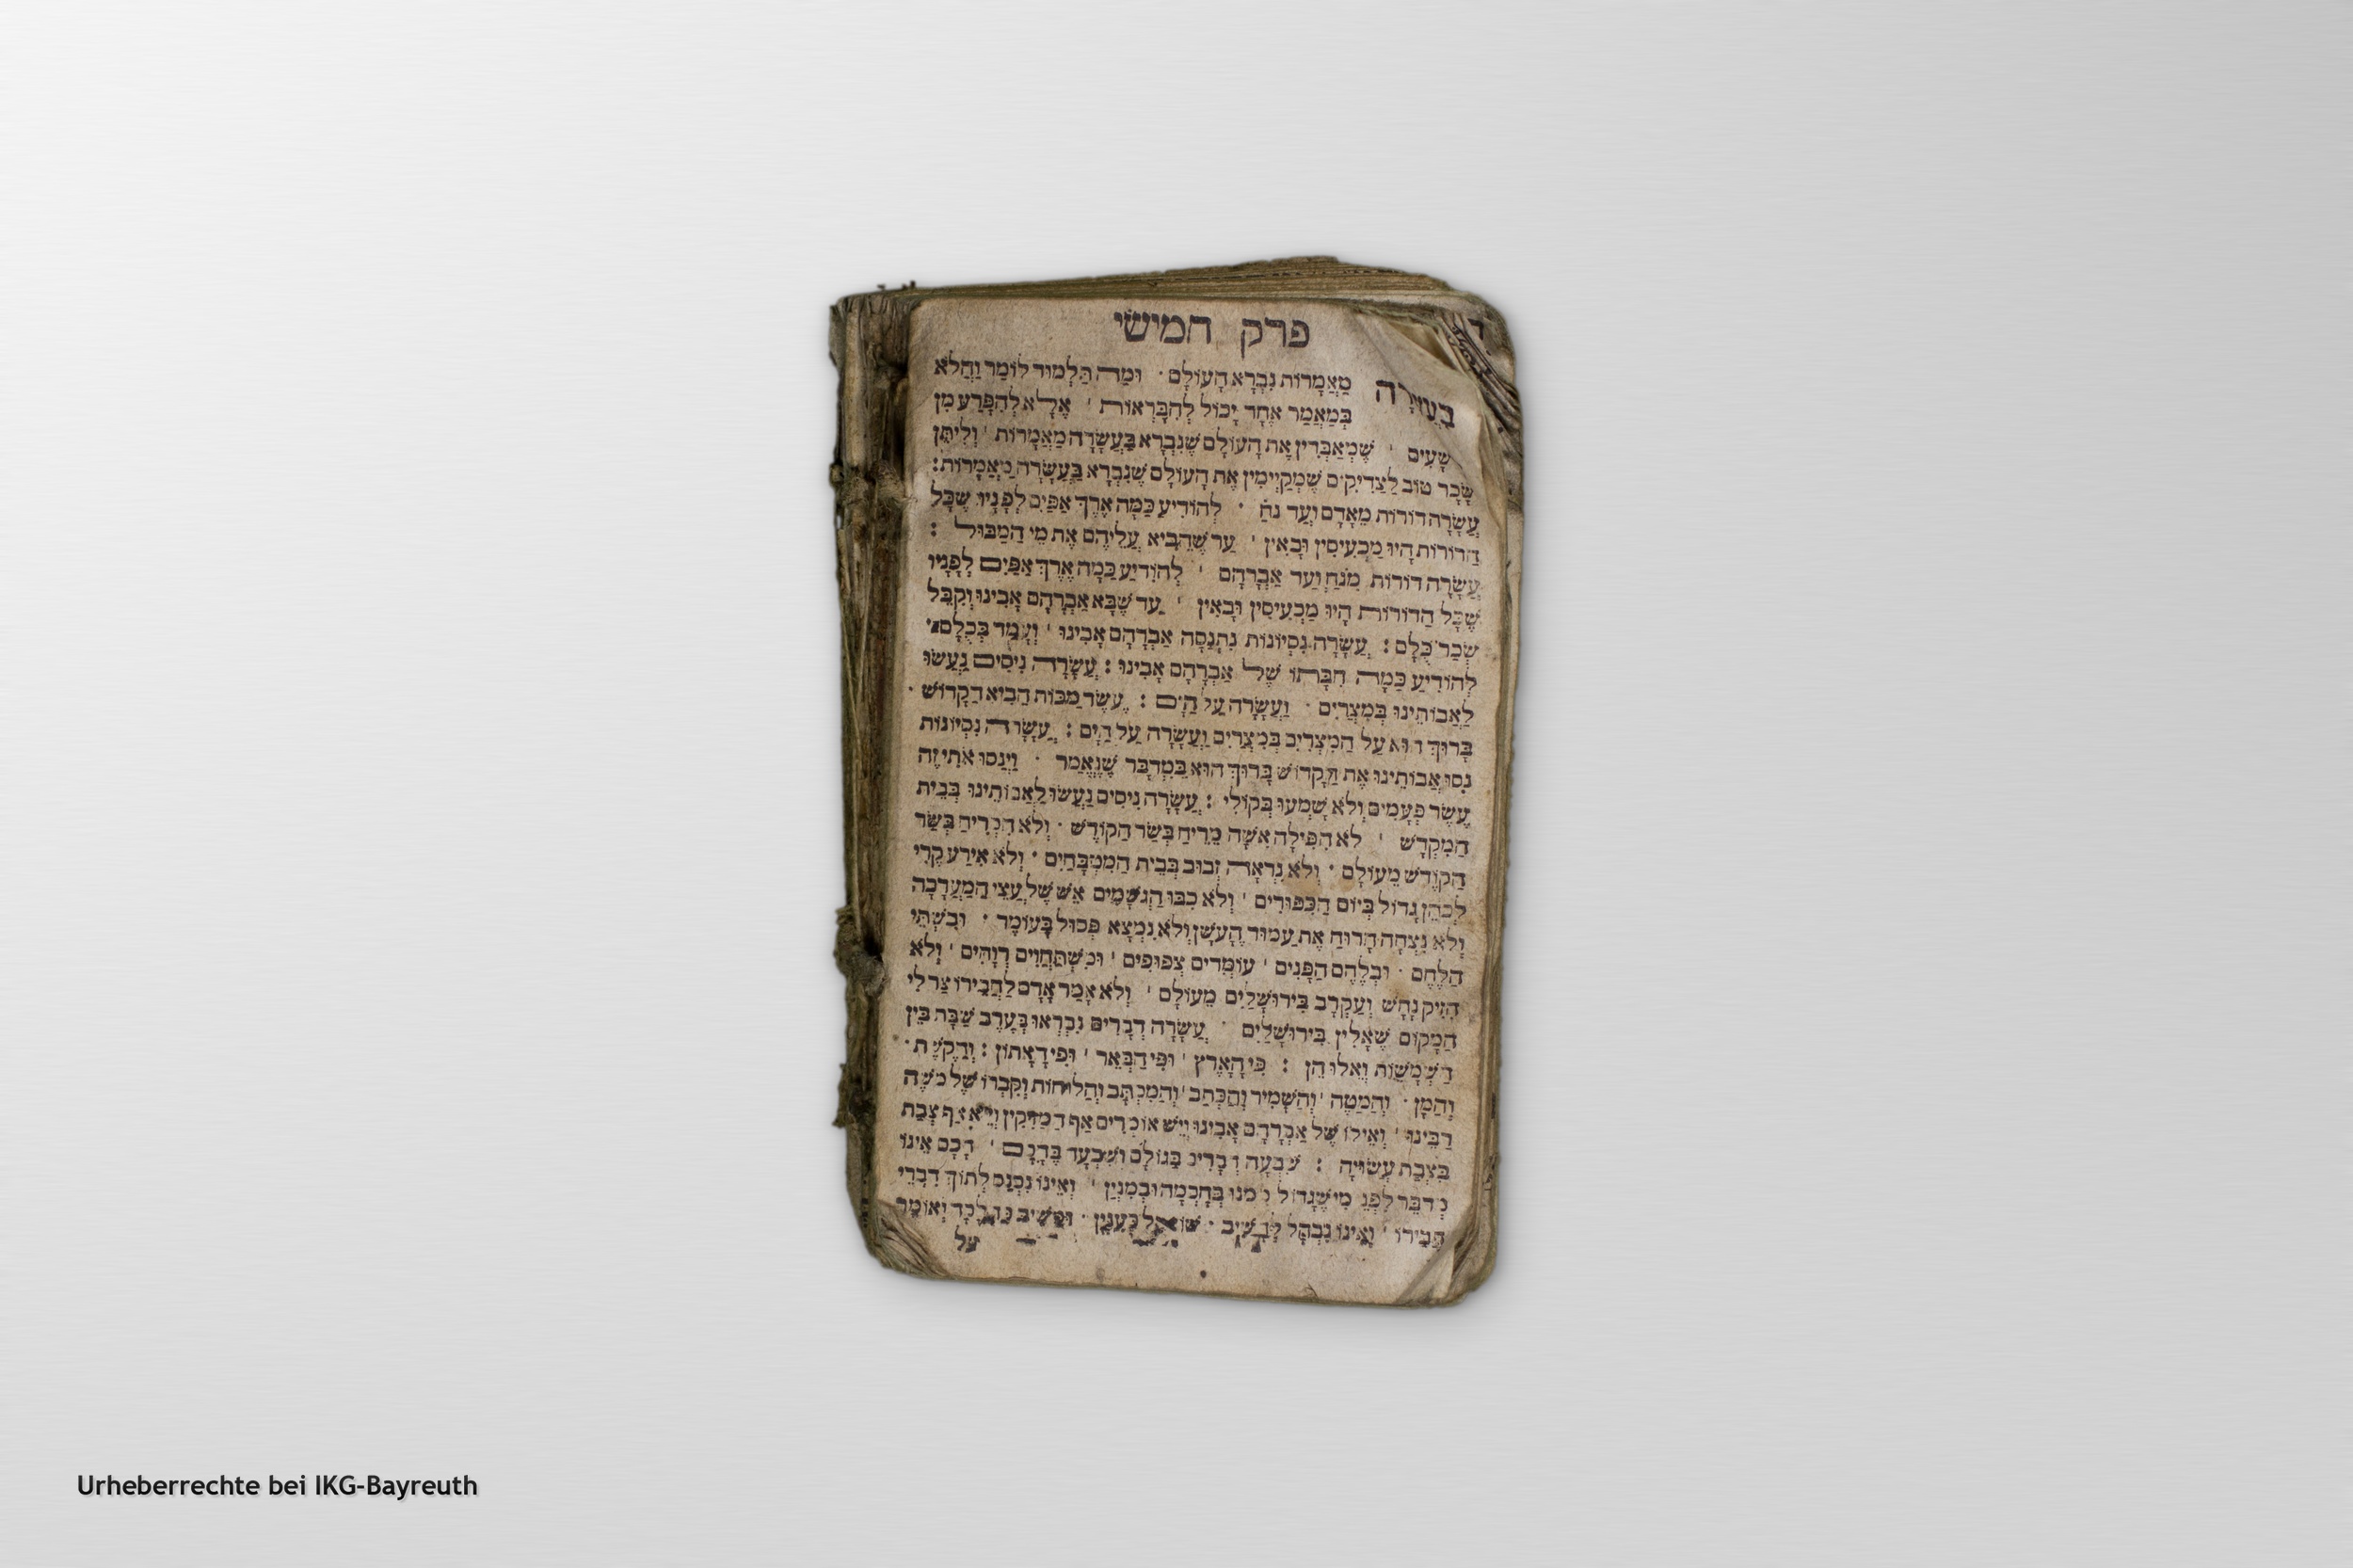 פרק חמישי
בעשרה מַאֲמָרוֹת נִבְרָא הָעוֹלָם · וּמַה תַּלְמוּד לוֹמַר וַהֲלֹא
בְּמַאֲמַר אֶחָד יָכוֹל לְהִבָּרְאוֹת ' אֶלָּא לְהִפָּרַע מִן
שָׁעִים ' שֶׁמְאַבְּדִין אֶת הָעוֹלָם שֶׁנִּבְרָא בַּעֲשָׂרָה מַאֲמָרוֹת ' וְלִיתֵּן
שָׂכָר טוֹב לַצַדִיקִים שֶׁמְקַיְימִין אֶת הָעוֹלָם שֶׁנִבְרָא בַּעֲשָׂרָה מַאֲמָרוֹת :
עֲשָׂרָה דוֹרוֹת מֵאָדָם וְעַד נֹחַ · לְהוֹדִיעַ כַּמָּה אֶרֶךְ אַפַּיִם לְפָנָיו שֶׁכָּל
הַדוֹרוֹת הָיוּ מַכְעִיסִין וּבָאִין ' עַד שֶׁהֵבִיא עֲלֵיהֶם אֶת מֵי הַמַבּוּל :
עֲשָׂרָה דוֹרוֹת מִנֹחַ וְעַד אַבְרָהָם ' לְהוֹדִיעַ כַּמָה אֶרֶךְ אַפַּיִם לְפָנָיו
שֶׁכָּל הַדוֹרוֹת הָיוּ מַכְעִיסִין וּבָאִין ' עַד שֶׁבָּא אַבְרָהָם אָבִינוּ וְקִבֵּל
שְׂכַר כֻּלָם : עֲשָׂרָה נִסְיוֹנוֹת נִתְנַסָּה אַבְרָהָם אָבִינוּ ' וְעָמַד בְּכֻלָם
לְהוֹדִיעַ כַּמָה חִבָּתוֹ שֶׁל אַבְרָהָם אָבִינוּ : עֲשָׂרָה נִיסִים נַעֲשׂוּ
לַאֲבוֹתֵינוּ בְּמִצְרַיִם · וַעֲשָׂרָה עַל הַיָם : עֶשֶׂר מַכּוֹת הֵבִיא הַקָדוֹשׁ
בָּרוּךְ הוּא עַל הַמִצְרִים בְּמִצְרַיִם וַעֲשָׂרָה עַל הַיָם : עֲשָׂרָה נִסְיוֹנוֹת
נִסוּ אֲבוֹתֵינוּ אֶת הַקָדוֹשׁ בָּרוּךְ הוּא בַּמִדְבָּר שֶׁנֶאֱמַר · וַיְנַסוּ אֹתִי זֶה
עֶשֶׂר פְּעָמִים וְלֹא שָׁמְעוּ בְּקוֹלִי : עֲשָׂרָה נִיסִים נַעֲשׂוּ לַאֲבוֹתֵינוּ בְּבֵית
הַמִקְדָשׁ ' לֹא הִפִּילָה אִשָׁה מֵרֵיחַ בְּשַׂר הַקוֹדֶשׁ · וְלֹא הִסְרִיחַ בְּשַׂר
הַקוֹדֶשׁ מֵעוֹלָם · וְלֹא נִרְאָה זְבוּב בְּבֵית הַמִטְבָּחַיִם · וְלֹא אִירַע קֶרִי
לְכֹהֵן גָדוֹל בְּיוֹם הַכִּפּוּרִים ' וְלֹא כִבּוּ הַגְשָׁמִים אֵשׁ שֶׁל עֲצֵי הַמַעֲרָכָה
וְלֹא נִצְחָה הָרוּחַ אֶת עַמוּד הֶעָשָׁן וְלֹא נִמְצָא פְּסוּל בָּעוֹמֶר · וּבִשְׁתֵּי
הַלֶחֶם · וּבְלֶחֶם הַפָּנִים ' עוֹמְדִים צְפוּפִים ' וּמִשְׁתַּחֲוִים רְוָחִים ' וְלֹא
הִזִיק נָחָשׁ וְעַקְרָב בִּירוּשָׁלַיִם מֵעוֹלָם ' וְלֹא אָמַר אָדָם לַחֲבֵירוֹ צַר לִי
הַמָקוֹם שֶׁאָלִין בִּירוּשָׁלַיִם · עֲשָׂרָה דְבָרִים נִבְרְאוּ בְּעֶרֶב שַׁבָּת בֵּין
הַשְׁמָשׁוֹת וְאֵלוּ הֵן : פִּי הָאָרֶץ ' וּפִי הַבְּאֵר ' וּפִי הָאָתוֹן : וְהַקֶשֶׁת ·
וְהַמָן · וְהַמַטֶה ' וְהַשָׁמִיר וְהַכְּתַב ' וְהַמִכְתָּב וְהַלוּחוֹת וְקִבְרוֹ שֶׁל מֹשֶׁה
רַבֵּינוּ ' וְאֵילוֹ שֶׁל אַבְרָהָם אָבִינוּ וְיֵשׁ אוֹמְרִים אַף הַמַזִיקִין אַף צְבַת
בִּצְבַת עֲשׂוּיָה : שִׁבְעָה דְבָרִים בַּגוֹלָם וְשִׁבְעָה בֶּחָכָם ' חָכָם אֵינוֹ
מְדַבֵּר לִפְנֵי מִי שֶׁגָדוֹל מִמֶנוּ בְּחָכְמָה וּבְמִנְיַן ' וְאֵינוֹ נִכְנָס לְתוֹךְ דִבְרֵי
חֲבֵירוֹ ' וְאֵינוֹ נִבְהָל לְהָשִׁיב · שׁוֹאֵל כָּעִנְיָן · וּמֵשִׁיב כַּהֲלָכָה וְאוֹמֵר
על
Urheberrechte bei IKG-Bayreuth